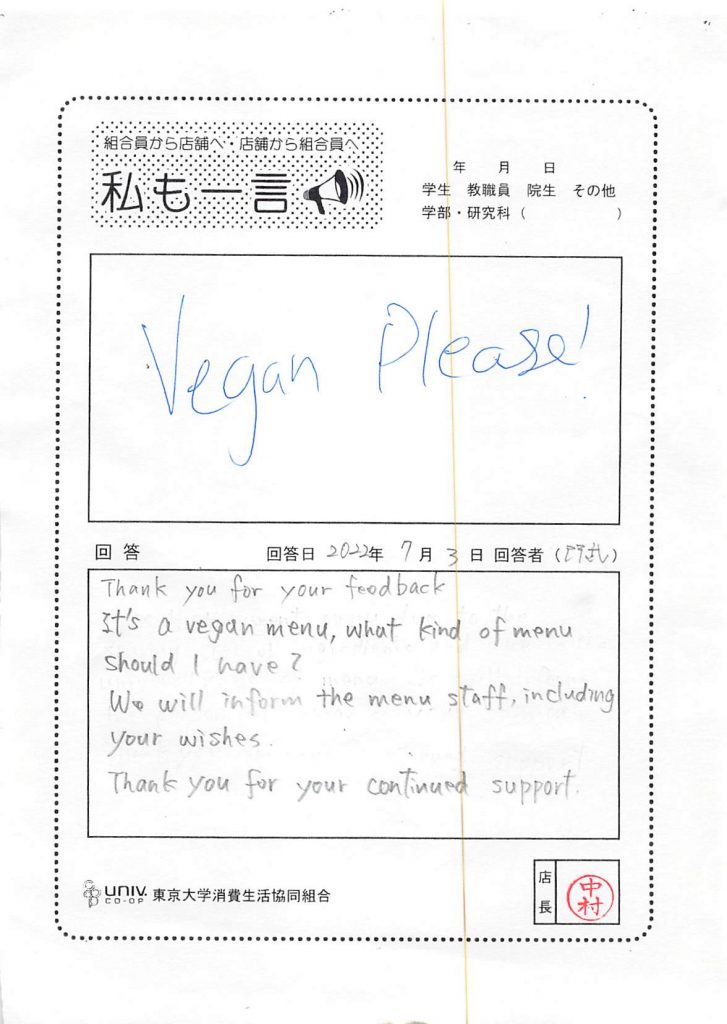 組合員から店舗へ・店舗から組合員へ
私も一言
年 月 日
学生 教職員 院生 その他
学部・研究科（ ）
Vegan Please!
回答 回答日 2022年 7月 3日 回答者（ ）
Thank you for your feedback
It's a vegan menu, what kind of menu
should I have?
We will inform the menu staff, including
your wishes.
Thank you for your continued support.
UNIV. CO-OP 東京大学消費生活協同組合
店長
中村